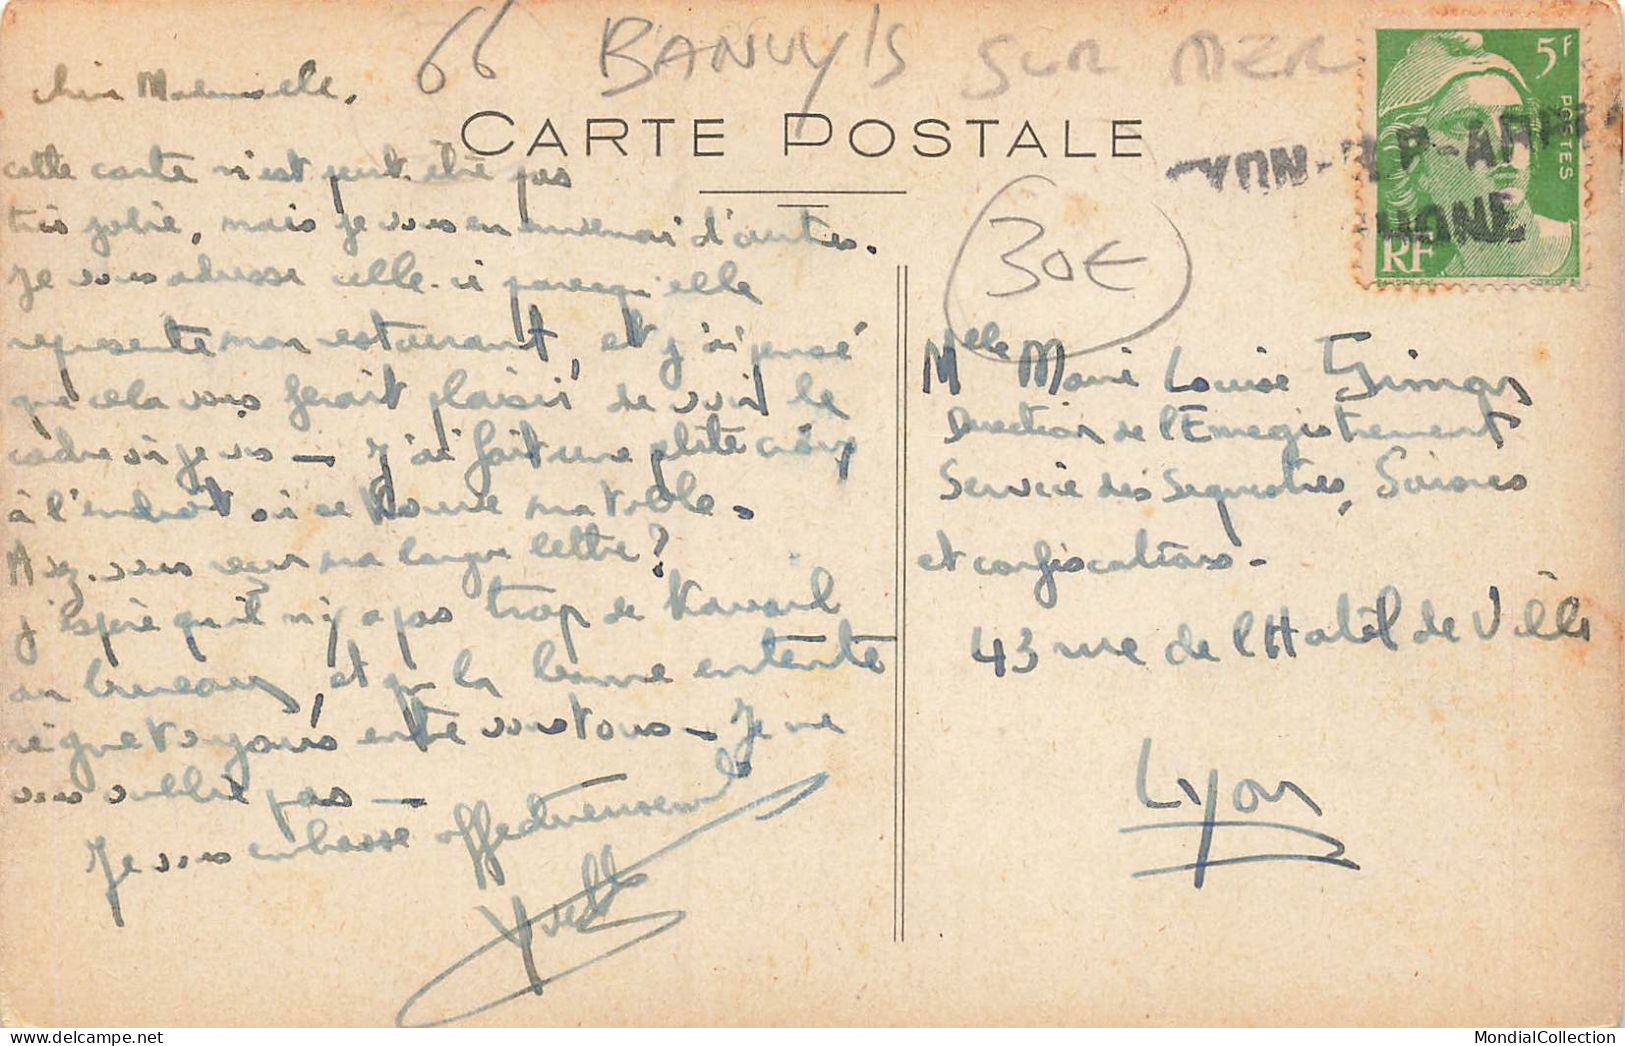 66 BANUY/S SUR MER
CARTE POSTALE
5F
POSTES
RF
YON-R P-ARRI
HONE
30€
Mademoiselle,
cette carte n'est peut être pas
très jolie, mais je vous en enverrai d'autres.
Je vous adresse celle-ci parcequ'elle
représente mon restaurant, et j'ai pensé
que cela vous ferait plaisir de voir le
cadre où je vis — J'ai fait une petite croix
à l'endroit où se trouve ma table.
Avez-vous reçu ma longue lettre?
J'espère qu'il n'y a pas trop de travail
au bureau, et que la bonne entente
règne toujours entre vous tous — Je ne
vous oublie pas —
Je vous embrasse affectueusement
Melle Marie Louise
Direction de l'Enregistrement
Service des Sequestres, Saisies
et confiscations -
43 rue de l'Hôtel de Ville
Lyon
MondialCollection